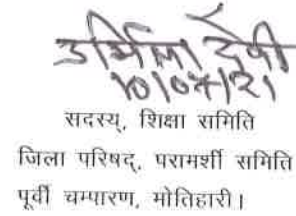 उर्मिला देवी
10/07/21
सदस्य, शिक्षा समिति
जिला परिषद्, परामर्शी समिति
पूर्वी चम्पारण, मोतिहारी।